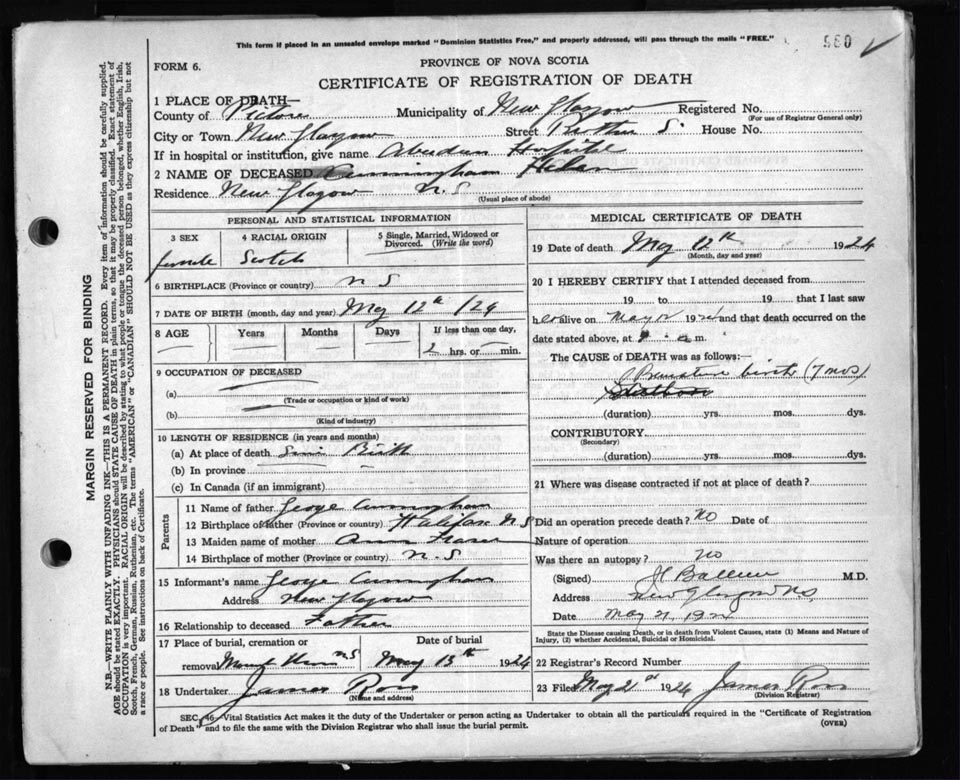 This form if placed in an unsealed envelope marked "Dominion Statistics Free," and properly addressed, will pass through the mails "FREE."
980
FORM 6.
PROVINCE OF NOVA SCOTIA
CERTIFICATE OF REGISTRATION OF DEATH
1 PLACE OF DEATH—
County of Pictou Municipality of New Glasgow Registered No.
(For use of Registrar General only)
City or Town New Glasgow Street House No.
If in hospital or institution, give name Aberdeen Hospital
2 NAME OF DECEASED Cunningham Helen
Residence New Glasgow N.S
(Usual place of abode)
PERSONAL AND STATISTICAL INFORMATION
3 SEX 4 RACIAL ORIGIN 5 Single, Married, Widowed or Divorced. (Write the word)
female Scotch
6 BIRTHPLACE (Province or country) N S
7 DATE OF BIRTH (month, day and year) May 12th /24
8 AGE Years Months Days If less than one day,
2 hrs. or min.
9 OCCUPATION OF DECEASED
(a)
(Trade or occupation or kind of work)
(b)
(Kind of industry)
10 LENGTH OF RESIDENCE (in years and months)
(a) At place of death Since Birth
(b) In province
(c) In Canada (if an immigrant)
Parents
11 Name of father George Cunningham
12 Birthplace of father (Province or country) Halifax N S
13 Maiden name of mother Ann Fraser
14 Birthplace of mother (Province or country) N.S
15 Informant's name George Cunningham
Address New Glasgow
16 Relationship to deceased Father
17 Place of burial, cremation or removal Date of burial
NS May 13th 1924
18 Undertaker James Ross
(Name and address)
MEDICAL CERTIFICATE OF DEATH
19 Date of death May 12th 1924
(Month, day and year)
20 I HEREBY CERTIFY that I attended deceased from
19 to 19 that I last saw
her alive on May 12 1924 and that death occurred on the
date stated above, at a m.
The CAUSE OF DEATH was as follows:—
Premature birth (7 mos)
(duration) yrs. mos. dys.
CONTRIBUTORY
(Secondary)
(duration) yrs. mos. dys.
21 Where was disease contracted if not at place of death?
Did an operation precede death? No Date of
Nature of operation
Was there an autopsy? no
(Signed) M.D.
Address New Glasgow N.S.
Date May 21, 1924
State the Disease causing Death, or in death from Violent Causes, state (1) Means and Nature of Injury, (2) whether Accidental, Suicidal or Homicidal.
22 Registrar's Record Number
23 Filed May 21st 1924 James Ross
(Division Registrar)
SEC. 46—Vital Statistics Act makes it the duty of the Undertaker or person acting as Undertaker to obtain all the particulars required in the "Certificate of Registration
of Death" and to file the same with the Division Registrar who shall issue the burial permit. (OVER)
MARGIN RESERVED FOR BINDING
N.B.—WRITE PLAINLY WITH UNFADING INK—THIS IS A PERMANENT RECORD. Every item of information should be carefully supplied.
AGE should be stated EXACTLY. PHYSICIANS should STATE CAUSE OF DEATH in plain terms, so that it may be properly classified. Exact statement of
OCCUPATION is very important. RACIAL ORIGIN will be described by stating to what people or tongue the deceased person belonged, whether English, Irish,
Scotch, French, German, Russian, Ruthenian, etc. The terms "AMERICAN" or "CANADIAN" SHOULD NOT BE USED as they express citizenship but not
a race or people. See instructions on back of Certificate.